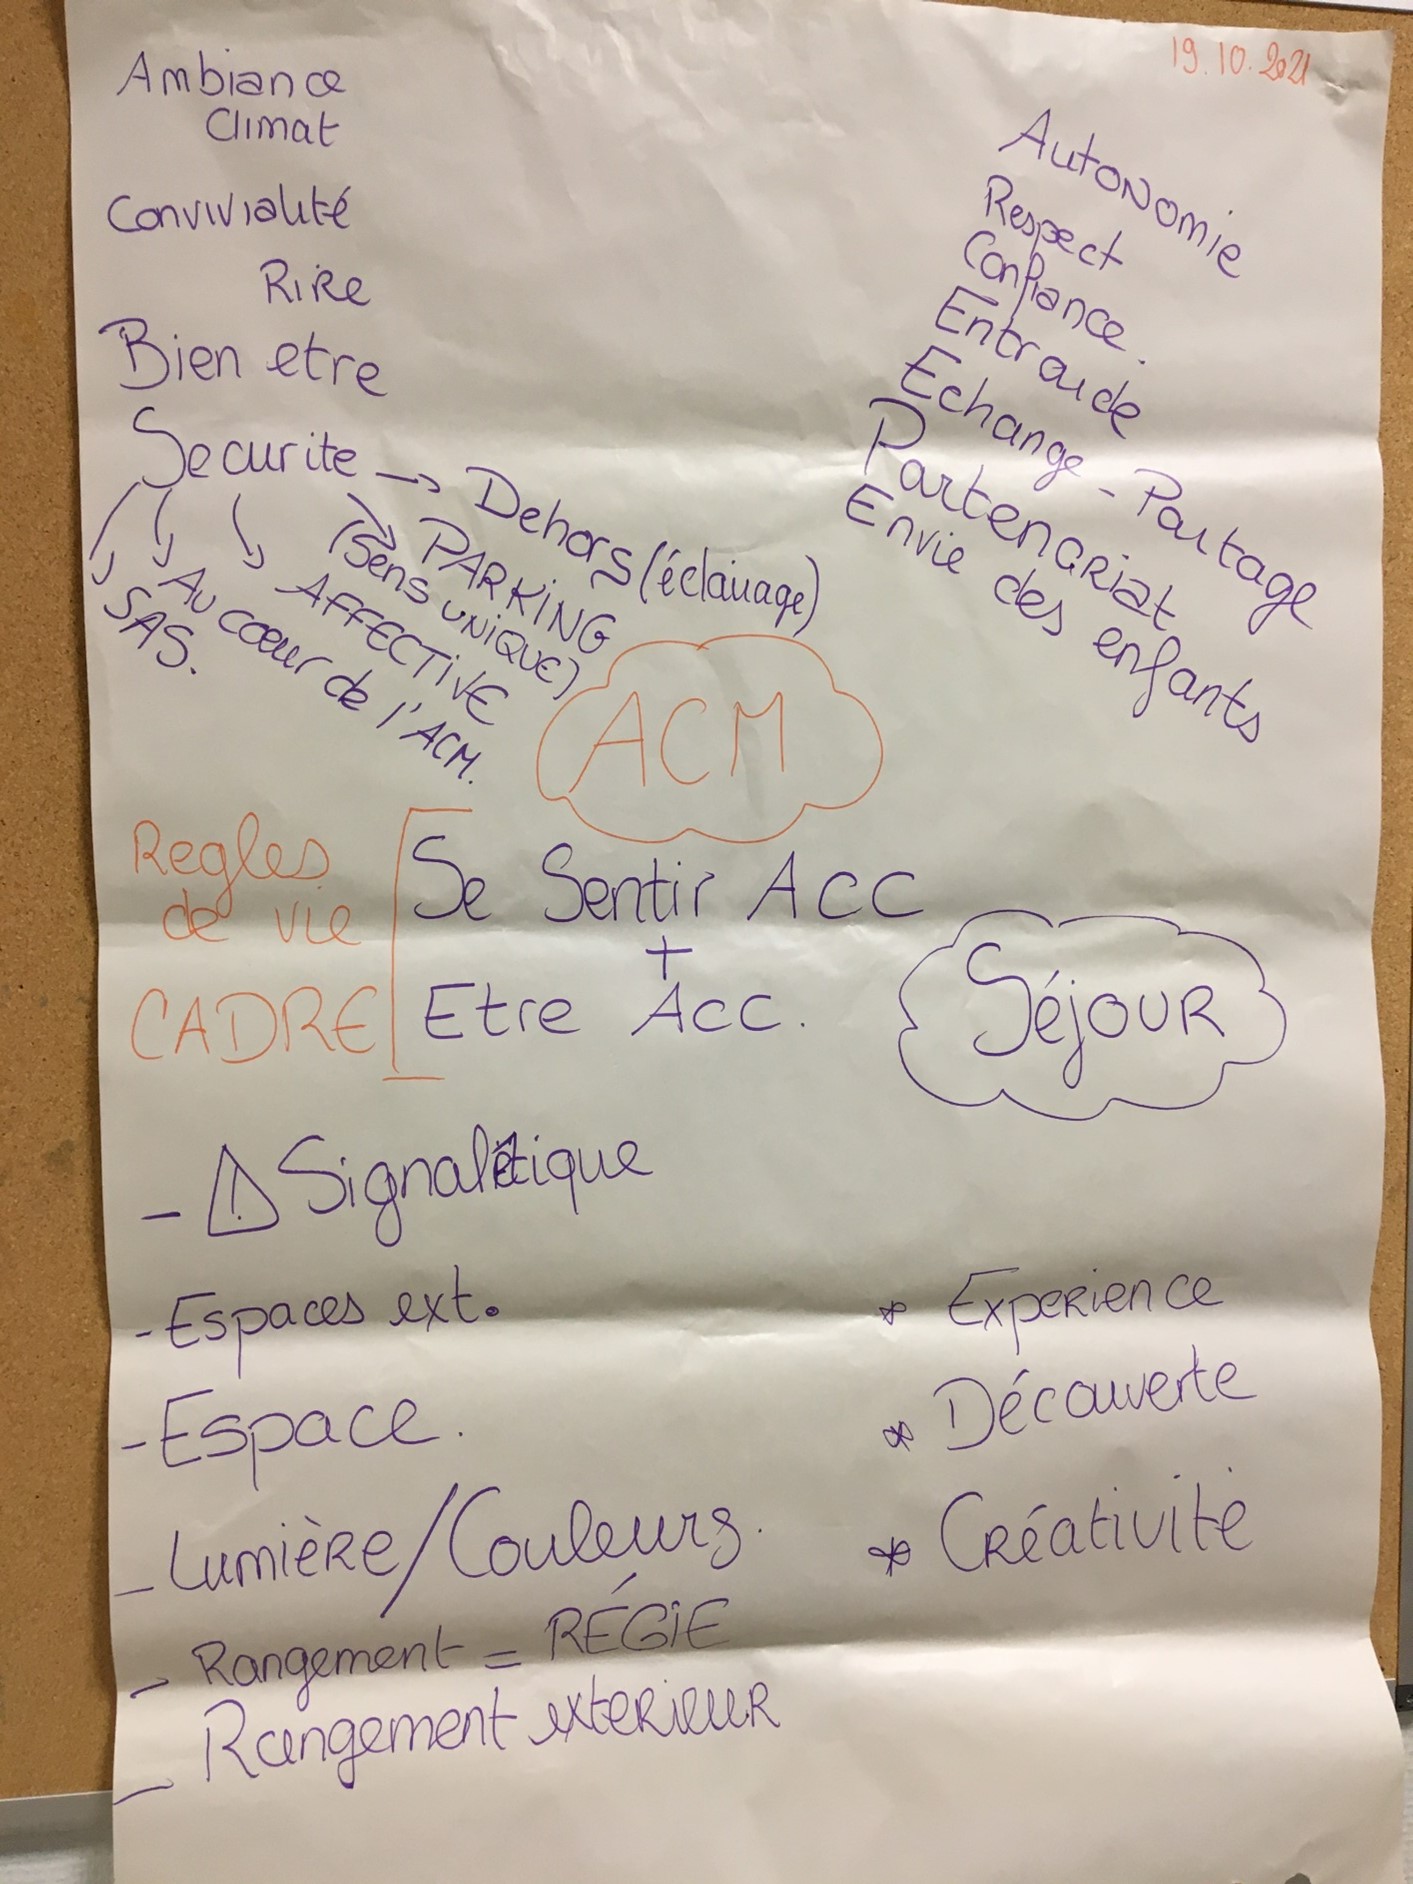 19.10.2021
Ambiance
Climat
Convivialité
Rire
Bien etre
Securite → Dehors (éclairage)
PARKING
(sens unique)
AFFECTIVE
Au cœur de l'ACM.
SAS.
Autonomie
Respect
Confiance.
Entraide
Echange - Partage
Partenariat
Envie des enfants
ACM
Regles
de vie
CADRE
Se Sentir ACC
+
Etre Acc.
SéjOUR
- ⚠ Signalétique
- Espaces ext.
- Espace.
- Lumière/Couleurs.
- Rangement = RÉGiE
- Rangement exterieur
* Experience
* Découverte
* Créativité